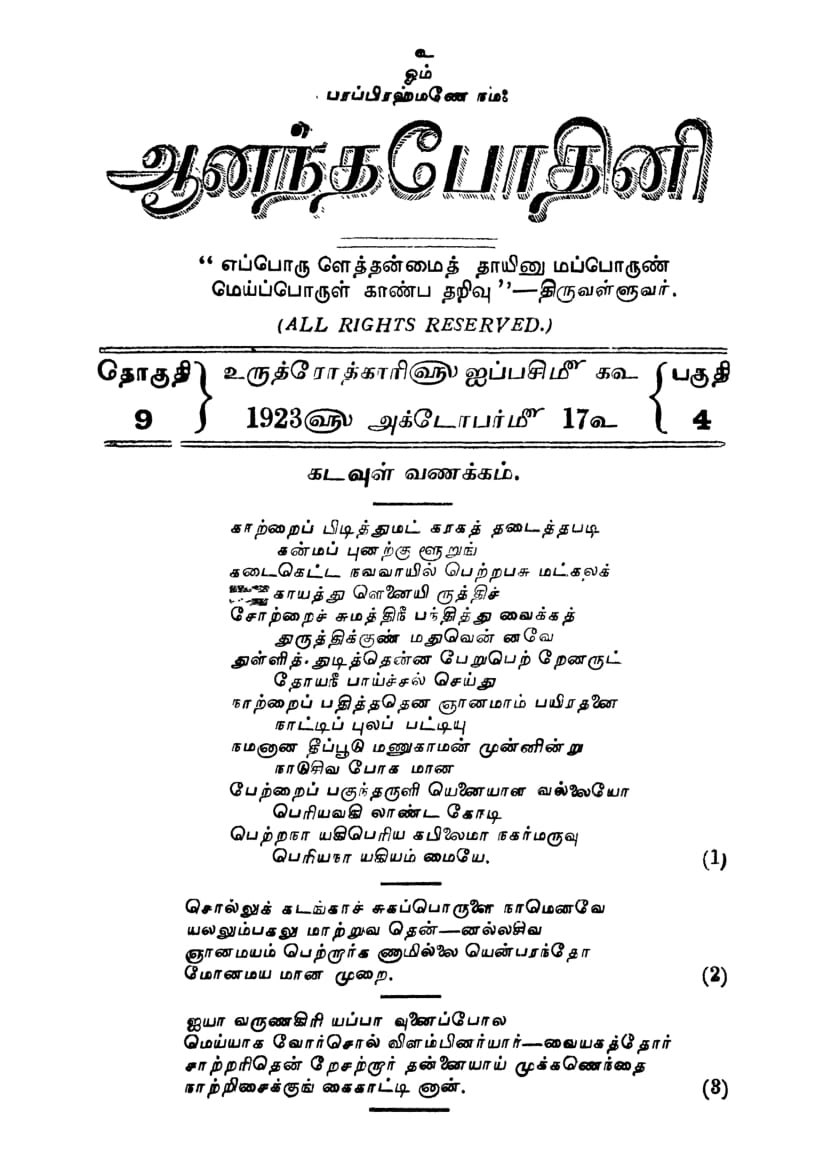 உ
ஓம்
பரப்பிரஹ்மணே நமஃ
ஆனந்தபோதினி
“ எப்பொரு ளெத்தன்மைத் தாயினு மப்பொருண்
மெய்ப்பொருள் காண்ப தறிவு ”—திருவள்ளுவர்.
(ALL RIGHTS RESERVED.)
தொகுதி 9 } உருத்ரோத்காரி௵ ஐப்பசி௴ கஉ { பகுதி 4
1923௵ அக்டோபர்௴ 17௨
கடவுள் வணக்கம்.
காற்றைப் பிடித்துமட் கரகத் தடைத்தபடி
கன்மப் புனற்கு ளூறுங்
கடைகெட்ட நவவாயில் பெற்றபசு மட்கலக்
காயத்து ளெனையி ருத்திச்
சோற்றைச் சுமத்திநீ பந்தித்து வைக்கத்
துருத்திக்குண் மதுவென் னவே
துள்ளித் துடித்தென்ன பேறுபெற் றேனருட்
டோயநீ பாய்ச்சல் செய்து
நாற்றைப் பதித்ததென ஞானமாம் பயிரதனை
நாட்டிப் புலப் பட்டியு
நமனான தீப்பூடு மணுகாமன் முன்னின்று
நாடுசிவ போக மான
பேற்றைப் பகுந்தருளி யெனையாள வல்லையோ
பெரியவகி லாண்ட கோடி
பெற்றநா யகிபெரிய கபிலைமா நகர்மருவு
பெரியநா யகியம் மையே. (1)
சொல்லுக் கடங்காச் சுகப்பொருளை நாமெனவே
யல்லும்பகலு மாற்றுவ தென்—னல்லசிவ
ஞானமயம் பெற்றோர்க ணாமில்லை யென்பரந்தோ
மோனமய மான முறை. (2)
ஐயா வருணகிரி யப்பா வுனைப்போல
மெய்யாக வோர்சொல் விளம்பினர்யார்—வையகத்தோர்
சாற்றரிதென் றேசற்றார் தன்னையாய் முக்கணெந்தை
நாற்றிசைக்குங் கைகாட்டி னான். (3)